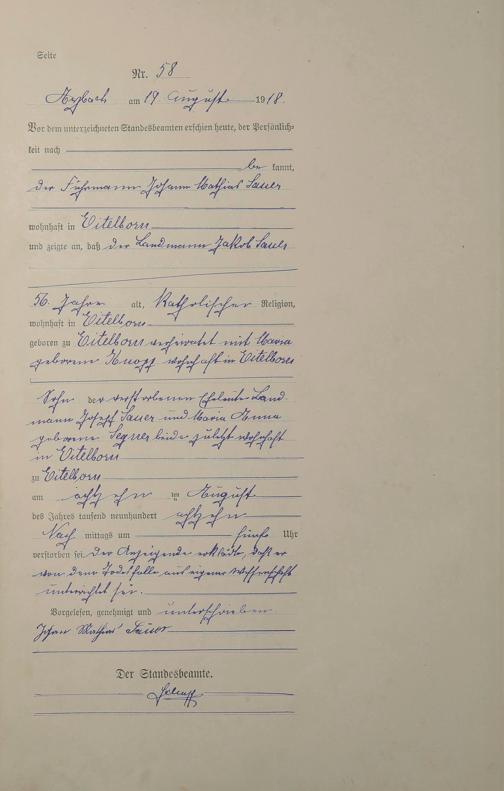 Seite
Nr. 58
Arzbach am 19 August 1918.
Vor dem unterzeichneten Standesbeamten erschien heute, der Persönlich-
keit nach
be kannt,
der Fuhrmann Johann Mathias Sauer
wohnhaft in Eitelborn
und zeigte an, daß der Landmann Jakob Sauer
56 Jahre alt, Katholischer Religion,
wohnhaft in Eitelborn
geboren zu Eitelborn verheiratet mit Maria
geborene Knopp wohnhaft in Eitelborn
Sohn der verstorbenen Eheleute Land
mann Josef Sauer und Maria Anna
geborene beide zuletzt wohnhaft
in Eitelborn
zu Eitelborn
am achtzehn im August
des Jahres tausend neunhundert achtzehn
Nach mittags um fünf Uhr
verstorben sei. Der Anzeigende erklärte, daß er
von dem Todesfalle aus eigener Wissenschaft
unterrichtet sei.
Vorgelesen, genehmigt und unterschrieben
Johan Mathias Sauer
Der Standesbeamte.